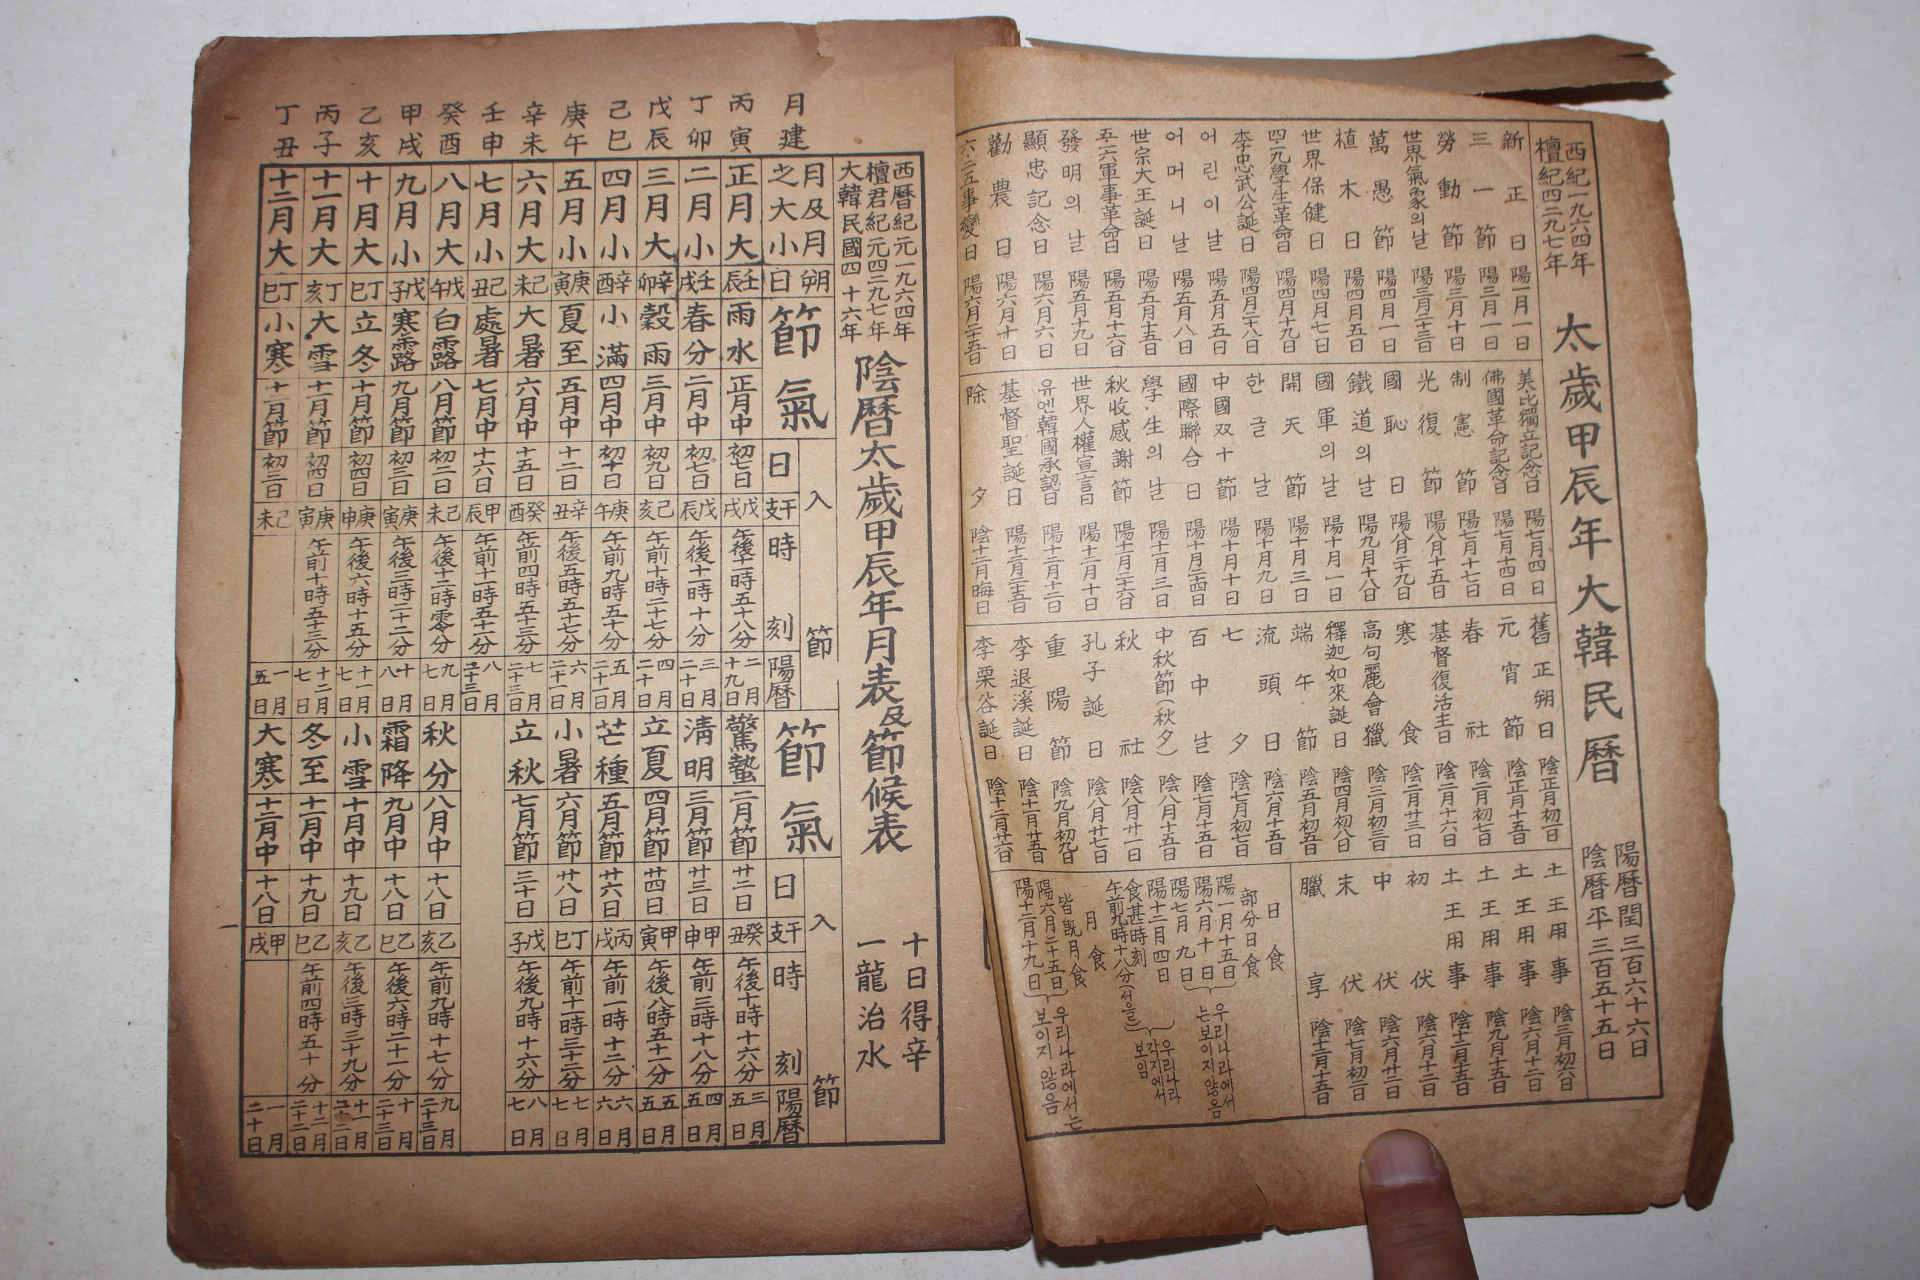 西紀一九六四年
檀紀四二九七年
太歲甲辰年大韓民曆
陽曆閏三百六十六日
陰曆平三百五十五日
新正日 陽一月一日
三一節 陽三月一日
勞動節 陽三月十日
世界氣象의날 陽三月二十三日
萬愚節 陽四月一日
植木日 陽四月五日
世界保健日 陽四月七日
四·一九學生革命日 陽四月十九日
李忠武公誕日 陽四月二十八日
어린이날 陽五月五日
어머니날 陽五月八日
世宗大王誕日 陽五月十五日
五·一六軍事革命日 陽五月十六日
發明의날 陽五月十九日
顯忠記念日 陽六月六日
勸農日 陽六月十日
六·二五事變日 陽六月二十五日
美比獨立記念日 陽七月四日
佛國革命記念日 陽七月十四日
制憲節 陽七月十七日
光復節 陽八月十五日
國恥日 陽八月二十九日
鐵道의날 陽九月十八日
國軍의날 陽十月一日
開天節 陽十月三日
한글날 陽十月九日
中國双十節 陽十月十日
國際聯合日 陽十月二十四日
學生의날 陽十一月三日
秋收感謝節 陽十一月二十六日
世界人權宣言日 陽十二月十日
유엔韓國承認日 陽十二月十二日
基督聖誕日 陽十二月二十五日
除夕 陰十二月晦日
舊正朔日 陰正月初一日
元宵節 陰正月十五日
春社 陰二月初七日
基督復活主日 陰二月十六日
寒食 陰二月廿三日
高句麗會獵 陰三月初三日
釋迦如來誕日 陰四月初八日
端午節 陰五月初五日
流頭日 陰六月十五日
七夕 陰七月初七日
百中날 陰七月十五日
中秋節(秋夕) 陰八月十五日
秋社 陰八月廿一日
孔子誕日 陰八月廿七日
重陽節 陰九月初九日
李退溪誕日 陰十一月廿五日
李栗谷誕日 陰十二月廿六日
土王用事 陰三月初六日
土王用事 陰六月十二日
土王用事 陰九月十五日
土王用事 陰十二月十五日
初伏 陰六月十二日
中伏 陰六月廿二日
末伏 陰七月初三日
臘享 陰十二月十五日
日食
部分日食
陽一月十五日
陽六月十日
陽七月九日
우리나라에서
는보이지않음
陽十二月四日
食甚時刻
午前九時十八分(서울)
우리나라
각지에서
보임
月食
皆旣月食
陽六月二十五日
陽十二月十九日
우리나라에서는
보이지않음
西曆紀元一九六四年
檀君紀元四二九七年
大韓民國四十六年
陰曆太歲甲辰年月表及節候表
十日得辛
一龍治水
月建
月及月之大小
朔日
節氣
入節
日
干支
時刻
陽曆
節氣
入節
日
干支
時刻
陽曆
丙寅 正月大 壬辰 雨水 正月中 初七日 戊戌 午後十一時五十八分 二月十九日 驚蟄 二月節 廿二日 癸丑 午後十時十六分 三月五日
丁卯 二月小 壬戌 春分 二月中 初七日 戊辰 午後十一時十分 三月二十日 淸明 三月節 廿三日 甲申 午前三時十八分 四月五日
戊辰 三月大 辛卯 穀雨 三月中 初九日 己亥 午前十時二十七分 四月二十日 立夏 四月節 廿四日 甲寅 午後八時五十一分 五月五日
己巳 四月小 辛酉 小滿 四月中 初十日 庚午 午前九時五十分 五月二十一日 芒種 五月節 廿六日 丙戌 午前一時十二分 六月六日
庚午 五月小 庚寅 夏至 五月中 十二日 辛丑 午後五時五十七分 六月二十一日 小暑 六月節 廿八日 丁巳 午前十一時三十二分 七月七日
辛未 六月大 己未 大暑 六月中 十五日 癸酉 午前四時五十三分 七月二十三日 立秋 七月節 三十日 戊子 午後九時十六分 八月七日
壬申 七月小 己丑 處暑 七月中 十六日 甲辰 午前十一時五十一分 八月二十三日
癸酉 八月大 戊午 白露 八月節 初二日 己未 午後十一時零分 九月七日 秋分 八月中 十八日 乙亥 午前九時十七分 九月二十三日
甲戌 九月小 戊子 寒露 九月節 初三日 庚寅 午後三時二十二分 十月八日 霜降 九月中 十八日 乙巳 午後六時二十一分 十月二十三日
乙亥 十月大 丁巳 立冬 十月節 初四日 庚申 午後六時十五分 十一月七日 小雪 十月中 十九日 乙亥 午後三時三十九分 十一月二十二日
丙子 十一月大 丁亥 大雪 十一月節 初四日 庚寅 午前十時五十三分 十二月七日 冬至 十一月中 十九日 乙巳 午前四時五十分 十二月二十二日
丁丑 十二月大 丁巳 小寒 十二月節 初三日 己未 一月五日 大寒 十二月中 十八日 甲戌 一月二十日